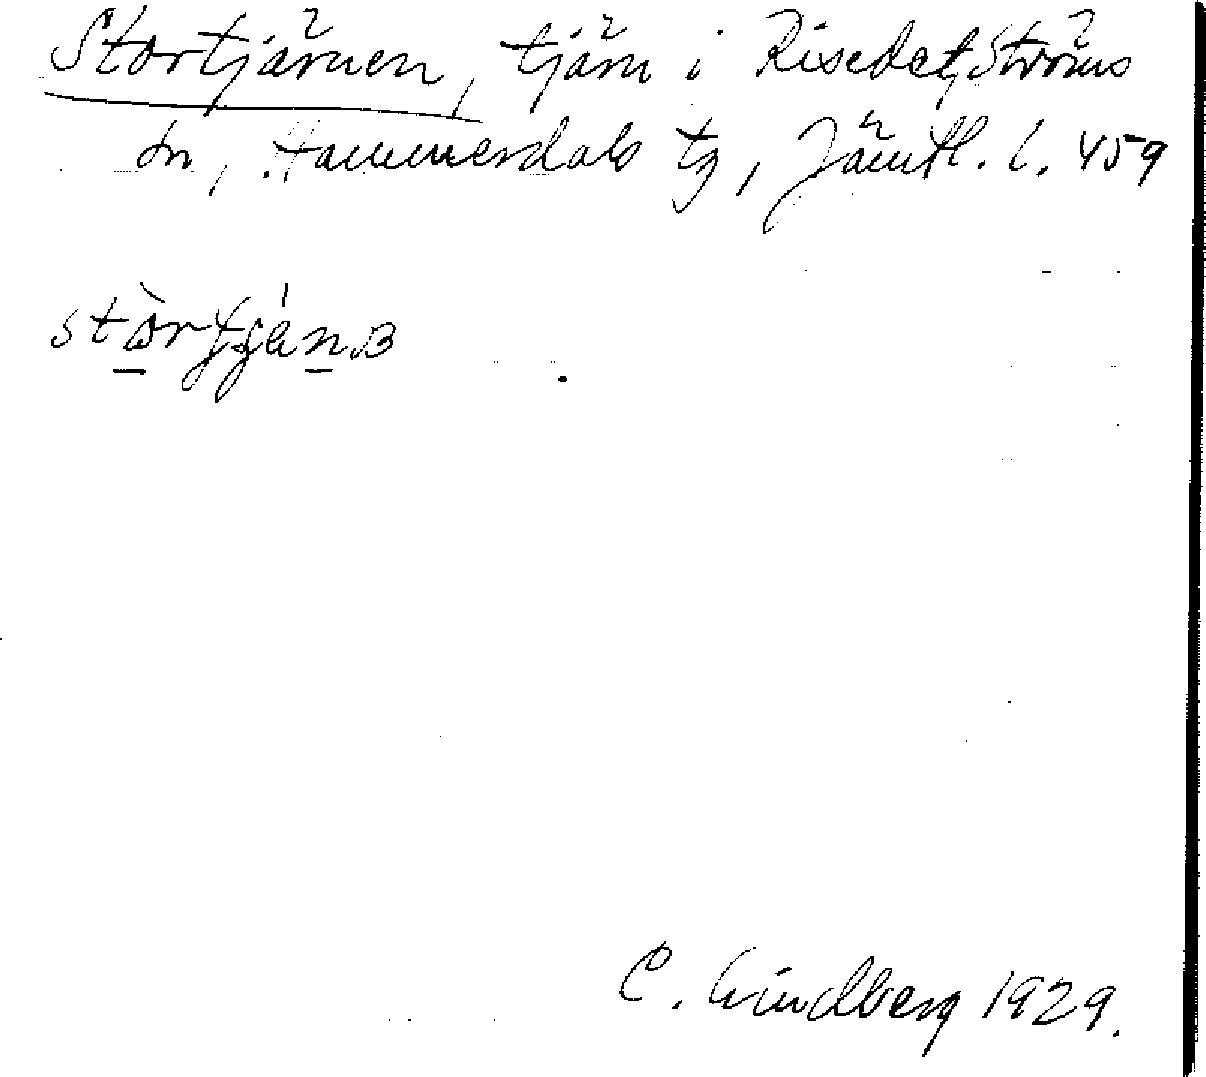 Stortjärnen, tjärn i Risedet, Ströms
sn, Hammerdals tg, Jämtl. l. 459
C. Lindberg 1929.